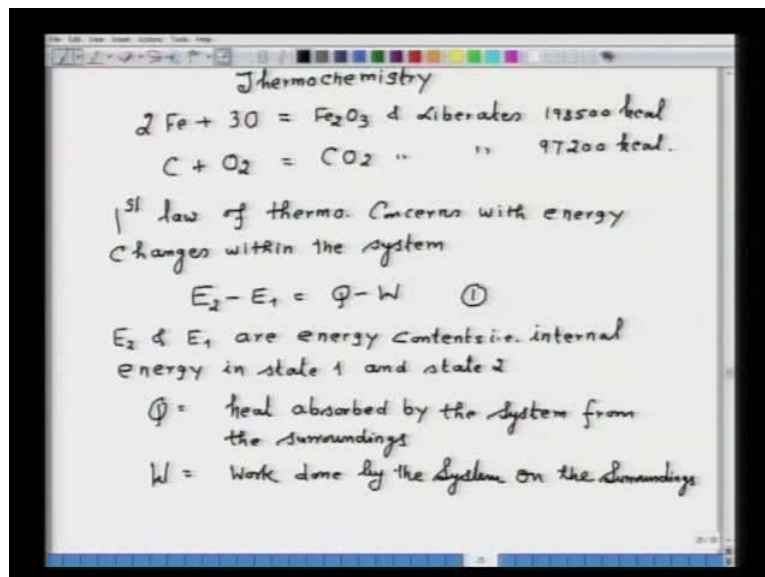 File Edit View Insert Actions Tools Help
Thermochemistry
2 Fe + 3O = Fe2O3 & Liberates 198500 kcal
C + O2 = CO2 " " 97200 kcal.
1st law of thermo. Concerns with energy
Changes within the system
E2 - E1 = Q - W ①
E2 & E1 are energy contents i.e. internal
energy in state 1 and state 2
Q = heat absorbed by the system from
the surroundings
W = Work done by the System on the Surroundings